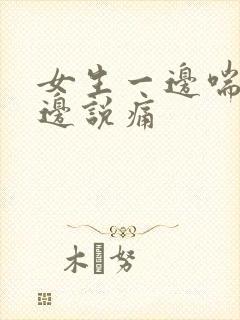 女生一邊喘
邊說痛
木 努